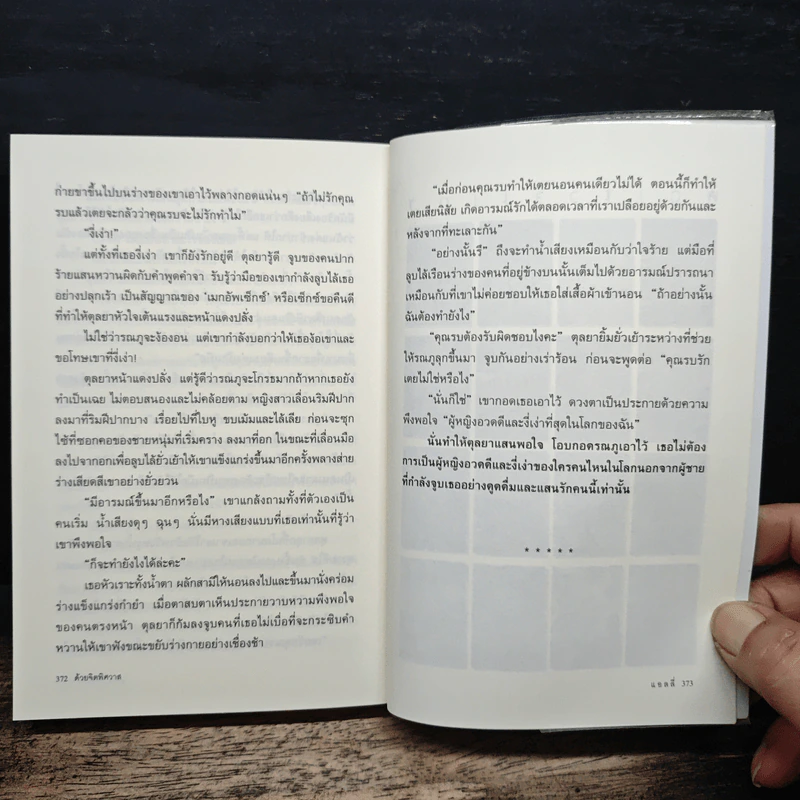 ก่ายขาขึ้นไปบนร่างของเขาเอาไว้พลางกอดแน่นๆ “ถ้าไม่รักคุณ
รบแล้วเตยจะกลัวว่าคุณรบจะไม่รักทำไม”
“งี่เง่า!”
แต่ทั้งที่เธองี่เง่า เขาก็ยังรักอยู่ดี ตุลยารู้ดี จูบของคนปาก
ร้ายแสนหวานผิดกับคำพูดคำจา รับรู้ว่ามือของเขากำลังลูบไล้เธอ
อย่างปลุกเร้า เป็นสัญญาณของ ‘เมกอัพเซ็กซ์’ หรือเซ็กซ์ขอคืนดี
ที่ทำให้ตุลยาหัวใจเต้นแรงและหน้าแดงปลั่ง
ไม่ใช่ว่ารณภูจะง้องอน แต่เขากำลังบอกว่าให้เธอง้อเขาและ
ขอโทษเขาที่งี่เง่า!
ตุลยาหน้าแดงปลั่ง แต่รู้ดีว่ารณภูจะโกรธมากถ้าหากเธอยัง
ทำเป็นเฉย ไม่ตอบสนองและไม่คล้อยตาม หญิงสาวเลื่อนริมฝีปาก
ลงมาที่ริมฝีปากบาง เรื่อยไปที่ใบหู ขบเม้มและไล้เลีย ก่อนจะซุก
ไซ้ที่ซอกคอของชายหนุ่มที่เริ่มคราง ลงมาที่อก ในขณะที่เลื่อนมือ
ลงไปจากอกเพื่อลูบไล้ยั่วเย้าให้เขาแข็งแกร่งขึ้นมาอีกครั้งพลางส่าย
ร่างเสียดสีเขาอย่างยั่วยวน
“มีอารมณ์ขึ้นมาอีกหรือไง” เขาแกล้งถามทั้งที่ตัวเองเป็น
คนเริ่ม น้ำเสียงดุๆ ฉุนๆ นั่นมีหางเสียงแบบที่เธอเท่านั้นที่รู้ว่า
เขาพึงพอใจ
“ก็จะทำยังไงได้ล่ะคะ”
เธอหัวเราะทั้งน้ำตา ผลักสามีให้นอนลงไปและขึ้นมานั่งคร่อม
ร่างแข็งแกร่งกำยำ เมื่อตาสบตาเห็นประกายวาบหวามพึงพอใจ
ของคนตรงหน้า ตุลยาก็ก้มลงจูบคนที่เธอไม่เบื่อที่จะกระซิบคำ
หวานให้เขาฟังขณะขยับร่างกายอย่างเชื่องช้า
372 ด้วยจิตพิศวาส
“เมื่อก่อนคุณรบทำให้เตยนอนคนเดียวไม่ได้ ตอนนี้ก็ทำให้
เตยเสียนิสัย เกิดอารมณ์รักได้ตลอดเวลาที่เราเปลือยอยู่ด้วยกันและ
หลังจากที่ทะเลาะกัน”
“อย่างนั้นรึ” ถึงจะทำน้ำเสียงเหมือนกับว่าใจร้าย แต่มือที่
ลูบไล้เรือนร่างของคนที่อยู่ข้างบนนั้นเต็มไปด้วยอารมณ์ปรารถนา
เหมือนกับที่เขาไม่ค่อยชอบให้เธอใส่เสื้อผ้าเข้านอน “ถ้าอย่างนั้น
ฉันต้องทำยังไง”
“คุณรบต้องรับผิดชอบไงคะ” ตุลยายิ้มยั่วเย้าระหว่างที่ช่วย
ให้รณภูลุกขึ้นมา จูบกันอย่างเร่าร้อน ก่อนจะพูดต่อ “คุณรบรัก
เตยไม่ใช่หรือไง”
“นั่นก็ใช่” เขากอดเธอเอาไว้ ดวงตาเป็นประกายด้วยความ
พึงพอใจ “ผู้หญิงอวดดีและงี่เง่าที่สุดในโลกของฉัน”
นั่นทำให้ตุลยาแสนพอใจ โอบกอดรณภูเอาไว้ เธอไม่ต้อง
การเป็นผู้หญิงอวดดีและงี่เง่าของใครคนไหนในโลกนอกจากผู้ชาย
ที่กำลังจูบเธออย่างดูดดื่มและแสนรักคนนี้เท่านั้น
* * * * *
แชลลี่ 373